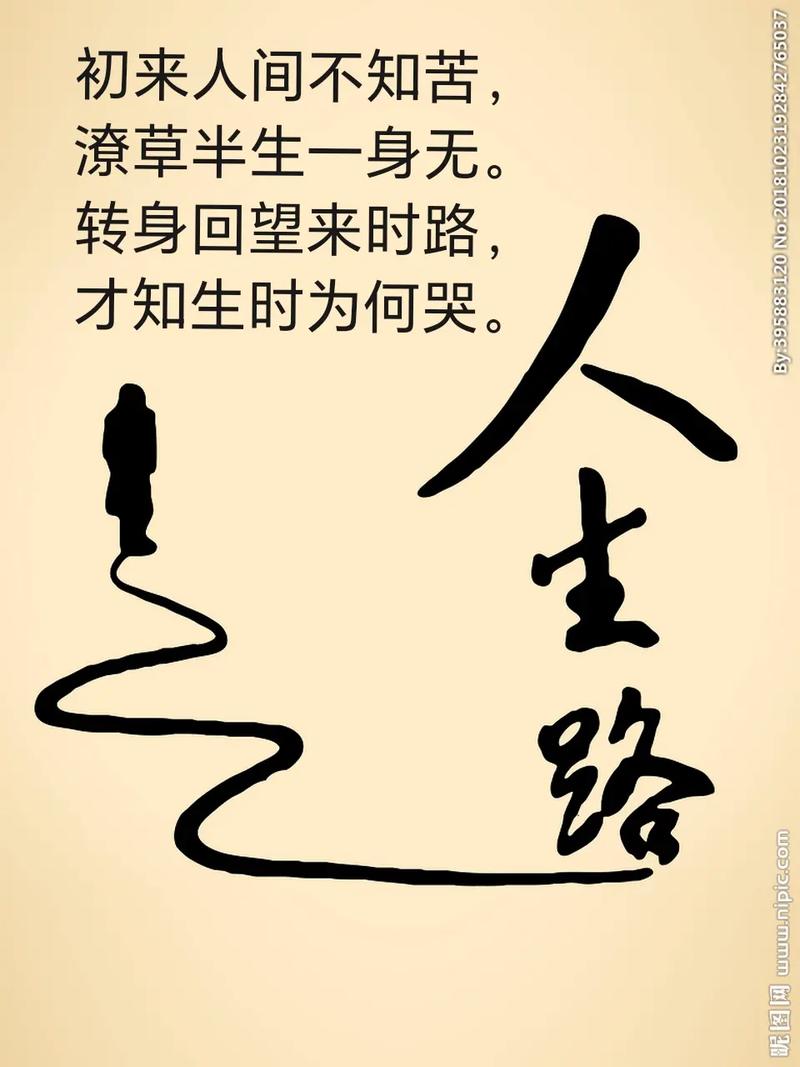 初来人间不知苦，
潦草半生一身无。
转身回望来时路，
才知生时为何哭。
人生路
By:395883120 No:20181023192842765037
昵图网 www.nipic.com